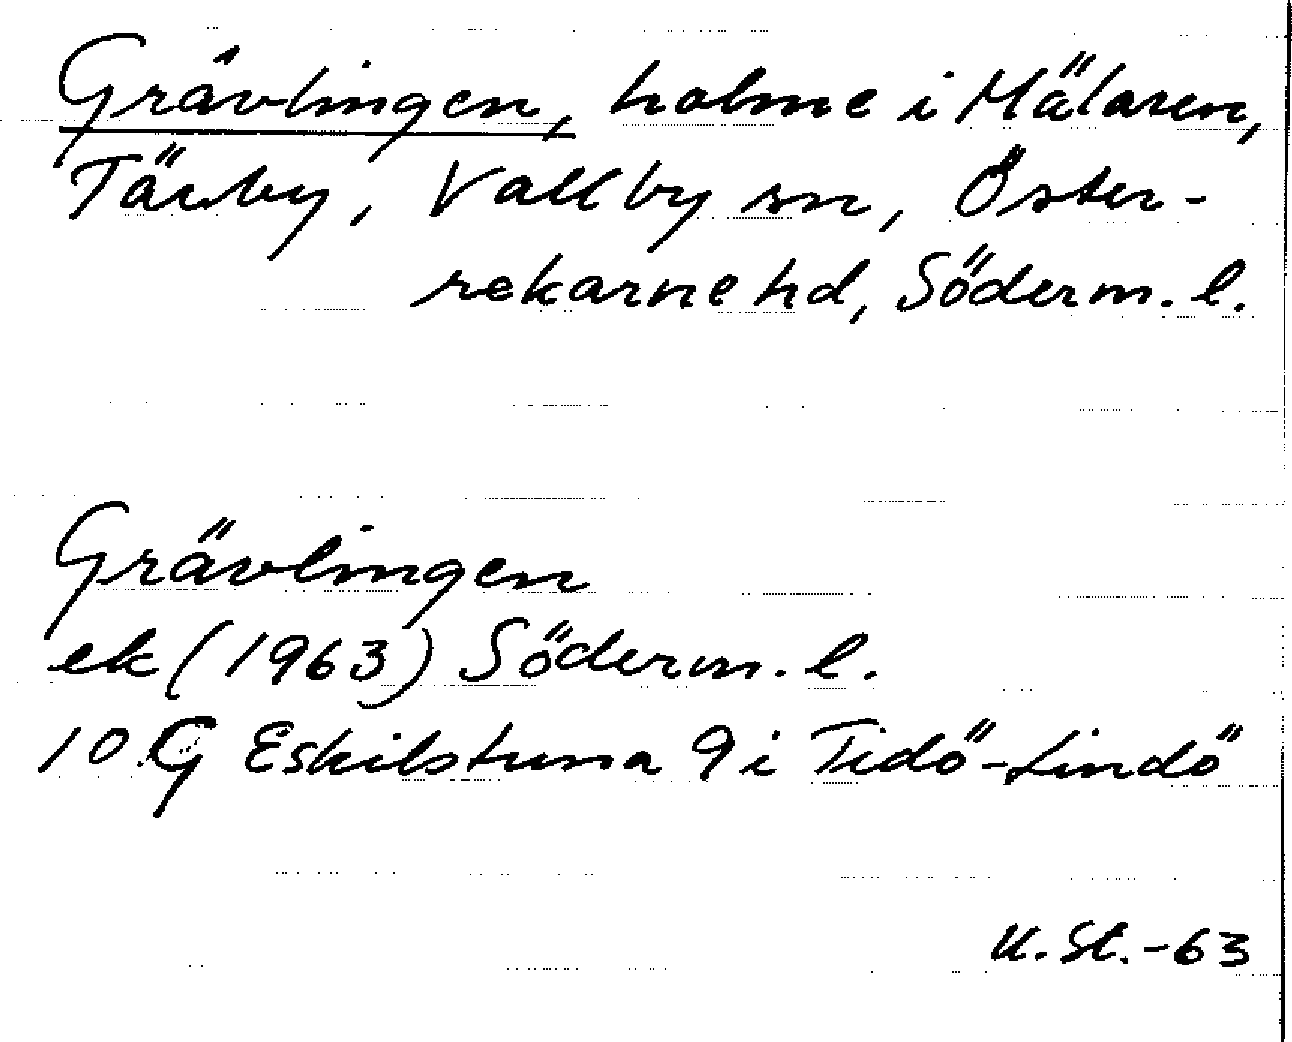 Grävlingen, holme i Mälaren,
Tärby, Vallby sn, Öster-
rekarne hd, Söderm. l.
Grävlingen
ek (1963) Söderm. l.
10 G Eskilstuna 9 i Tidö-Lindö
U. St. -63